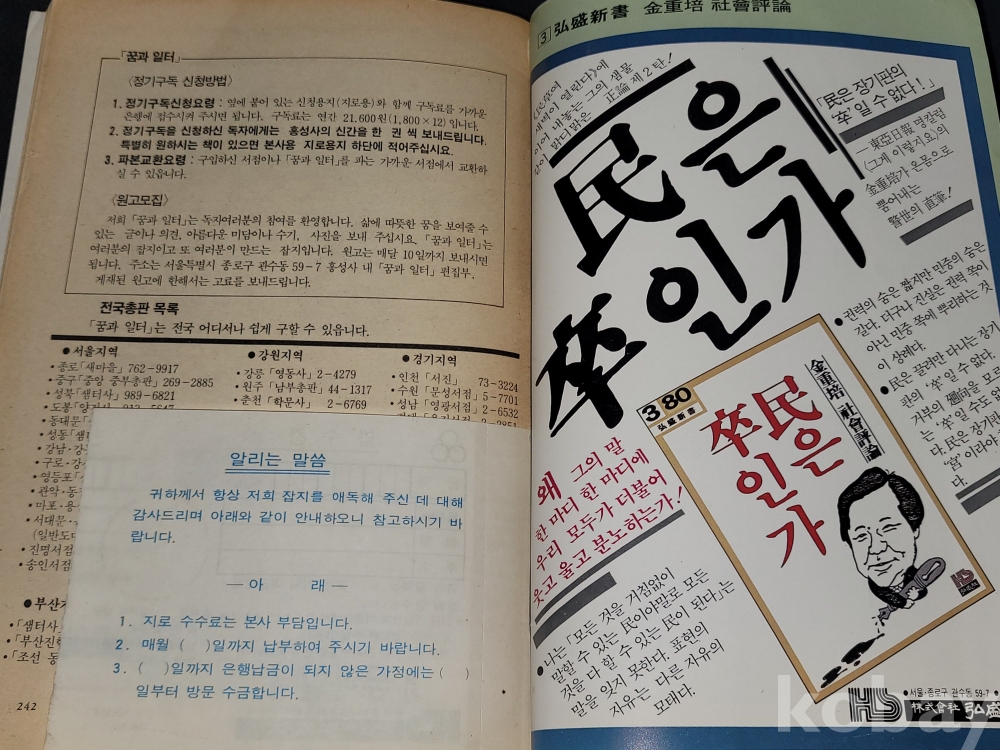 「꿈과 일터」
〈정기구독 신청방법〉
1. 정기구독신청요령 : 옆에 붙어 있는 신청용지(지로용)와 함께 구독료를 가까운
은행에 접수시켜 주시면 됩니다. 구독료는 연간 21.600원(1,800×12)입니다.
2. 정기구독을 신청하신 독자에게는 홍성사의 신간을 한 권 씩 보내드립니다.
특별히 원하시는 책이 있으면 본사용 지로용지 하단에 적어주십시요.
3. 파본교환요령 : 구입하신 서점이나 「꿈과 일터」를 파는 가까운 서점에서 교환하
실 수 있읍니다.
〈원고모집〉
저희 「꿈과 일터」는 독자여러분의 참여를 환영합니다. 삶에 따뜻한 꿈을 보여줄 수
있는 글이나 의견, 아름다운 미담이나 수기, 사진을 보내 주십시요. 「꿈과 일터」는
여러분의 잡지이고 또 여러분이 만드는 잡지입니다. 원고는 매달 10일까지 보내시면
됩니다. 주소는 서울특별시 종로구 관수동 59-7 홍성사 내 「꿈과 일터」 편집부.
게재된 원고에 한해서는 고료를 보내드립니다.
전국총판 목록
「꿈과 일터」는 전국 어디서나 쉽게 구할 수 있읍니다.
●서울지역
•종로「새마을」 762-9917
•중구「중앙 중부총판」 269-2885
•성북「샘터사」 989-6821
도봉「
•동대문「
•성동「샘
•강남·강
•구로·강
•영등포「
•관악·동
•마포·용
•서대문·
(일반도
•진명서점
•송인서점
●부산지
•「샘터사」
•「부산진
•「조선 동
●강원지역
•강릉「영동사」 2-4279
•원주「남부총판」 44-1317
•춘천「학문사」 2-6769
●경기지역
•인천「서진」 73-3224
•수원「문성서점」 5-7701
성남「영광서점」 2-6532
2-2851
알리는 말씀
귀하께서 항상 저희 잡지를 애독해 주신 데 대해
감사드리며 아래와 같이 안내하오니 참고하시기 바
랍니다.
— 아 래 —
1. 지로 수수료는 본사 부담입니다.
2. 매월 ( )일까지 납부하여 주시기 바랍니다.
3. ( )일까지 은행납금이 되지 않은 가정에는 ( )
일부터 방문 수금합니다.
242
3 弘盛新書 金重培 社會評論
《民草여
새벽이 열린다》에
이어 내놓는 그의 샘물
같이 맑디맑은 正論 제2탄!
民은
卒인가
「民은 장기판의
'卒'일 수 없다!」
—東亞日報 명칼럼
《그게 이렇지요》의
金重培가 온몸으로
뿜어내는
警世의 直筆!
●권력의 숨은 짧지만 민중의 숨은
길다. 더구나 진실은 권력 쪽이
아닌 민중 쪽에 뿌리하는 것
이 상례다.
●民은 끌려만 다니는 장기
의 '卒'일 수 없다.
모르
는 '卒'일 수도
다. 民은 장기
'宮'이라야
다.
왜 그의 말
한 마디 한 마디에
우리 모두가 더불어
웃고 울고 분노하는가!
●나는 「모든 것을 거침없이
말할 수 있는 民이야말로 모든
것을 다 할 수 있는 民이 된다」는
말을 잊지 못한다. 표현의
자유는 다른 자유의
모태다.
3 80
弘盛新書
金重培 社會評論
民은
卒인가
HS
弘盛社
HS
●서울·종로구 관수동 59-7 ●
株式會社 弘盛
kobay